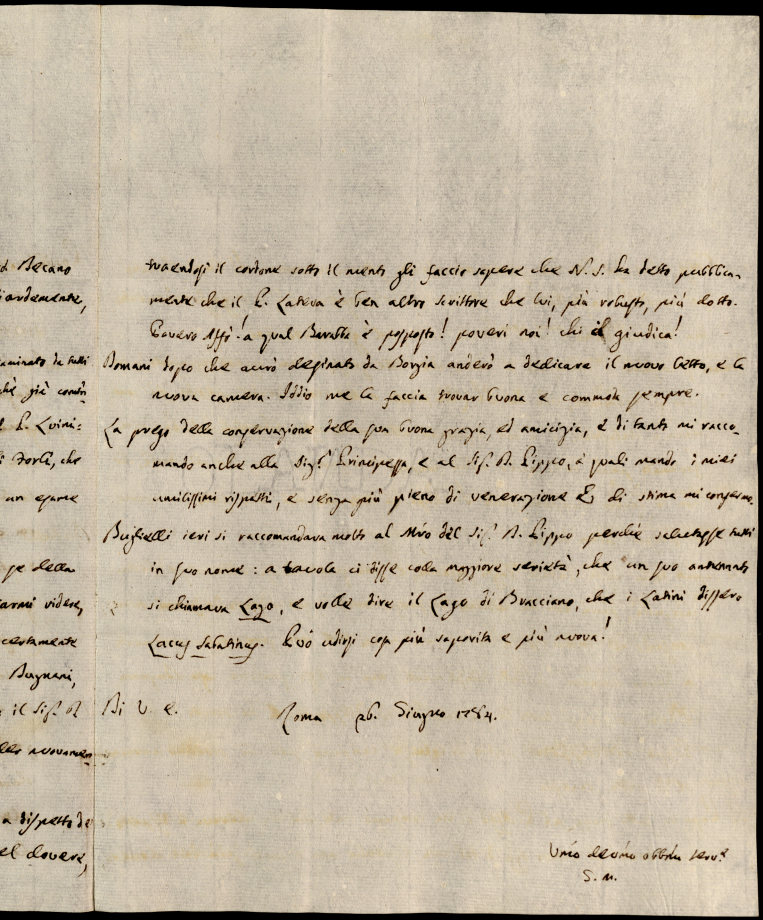 d Becano
iardemente,
aminato da tutti
chè già contri
l P. Quini=
i Forlì, che
un esame
se della
armi videre,
certamente
Bugnani,
il Sig.r D.
novamen=
a dispetto de
el dovere,
traendosi il cordone sotto il mento gli faccio sapere che N. S. ha detto pubblica=
mente che il P. Lateva è ben altro scrittore che lui, più robusto, più dotto.
Povero Affò! a qual Baratta è posposto! poveri noi! chi il giudica!
Domani dopo che avrò desinato da Borgia anderò a dedicare il nuovo letto, e la
nuova camera. Iddio me la faccia trovar buona e commoda sempre.
La prego della conservazione della sua buona grazia, ed amicizia, e di tanto mi racco=
mando anche alla Sig.ra Principessa, e al Sig.r D. Lippo, a quali mando i miei
umilissimi rispetti, e senza più pieno di venerazione e di stima mi confermo.
Buglielli ieri si raccomandava molto al Mro del Sig.r D. Lippo perchè salutasse tutti
in suo nome: a tavola ci disse colla maggiore serietà, che un suo antennato
si chiamava Lago, e volle dire il Lago di Bracciano, che i Latini dissero
Lacus Sabatinus. Può udirsi cosa più saporita e più nuova!
Di V. E.
Roma 26. Giugno 1784.
Umo devmo obbmo serv.e
S. M.